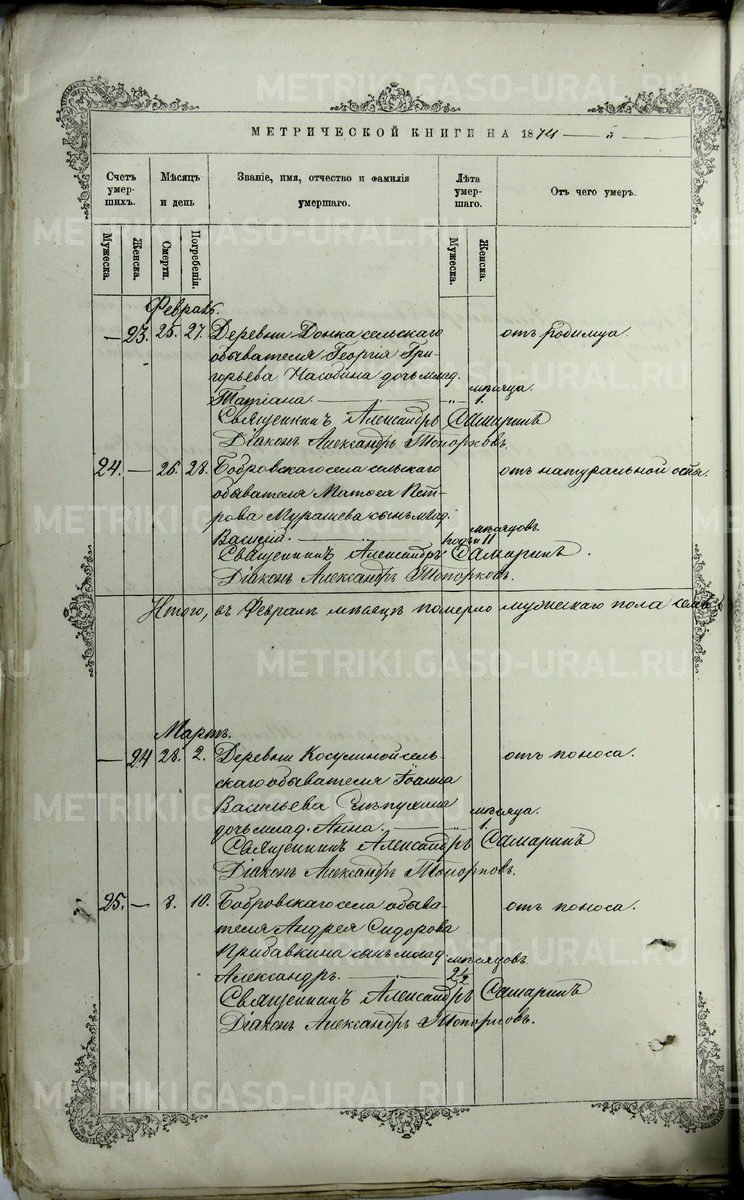 МЕТРИЧЕСКОЙ КНИГИ НА 1874
Счетъ умершихъ.
Мѣсяцъ и день
Званіе, имя, отчество и фамилія умершаго.
Лѣта умершаго.
Отъ чего умеръ.
Мужеска.
Женска.
Смерти.
Погребенія.
Мужеска.
Женска.
Февраль.
— 23. 25. 27. Деревни Донка сельскаго отъ родимца.
обывателя Георгія Гри-
горьева Насобина дочь млад. мѣсяца.
Татіана. 1.
Священникъ Александръ Самаринъ
Діаконъ Александръ Топорковъ.
24. — 26. 28. Бобровскаго села сельскаго отъ натуральной оспы.
обывателя Матѳея Пет-
рова Мурашева сынъ млад. мѣсяцовъ.
Василій. годъ 11
Священникъ Александръ Самаринъ.
Діаконъ Александръ Топорковъ.
Итого, въ Февралѣ мѣсяцѣ померло мужескаго пола семь
Мартъ.
— 24 28. 2. Деревни Косулиной сель- отъ поноса.
скаго обывателя Іоанна
Васильева мѣсяца.
дочь млад. Анна. 1.
Священникъ Александръ Самаринъ
Діаконъ Александръ Топорковъ.
25. — 8. 10. Бобровскаго села обыва- отъ поноса.
теля Андрея Сидорова
Прибавкина сынъ млад. мѣсяцовъ.
Александръ. 2½
Священникъ Александръ Самаринъ
Діаконъ Александръ Топорковъ.
METRIKI.GASO-URAL.RU